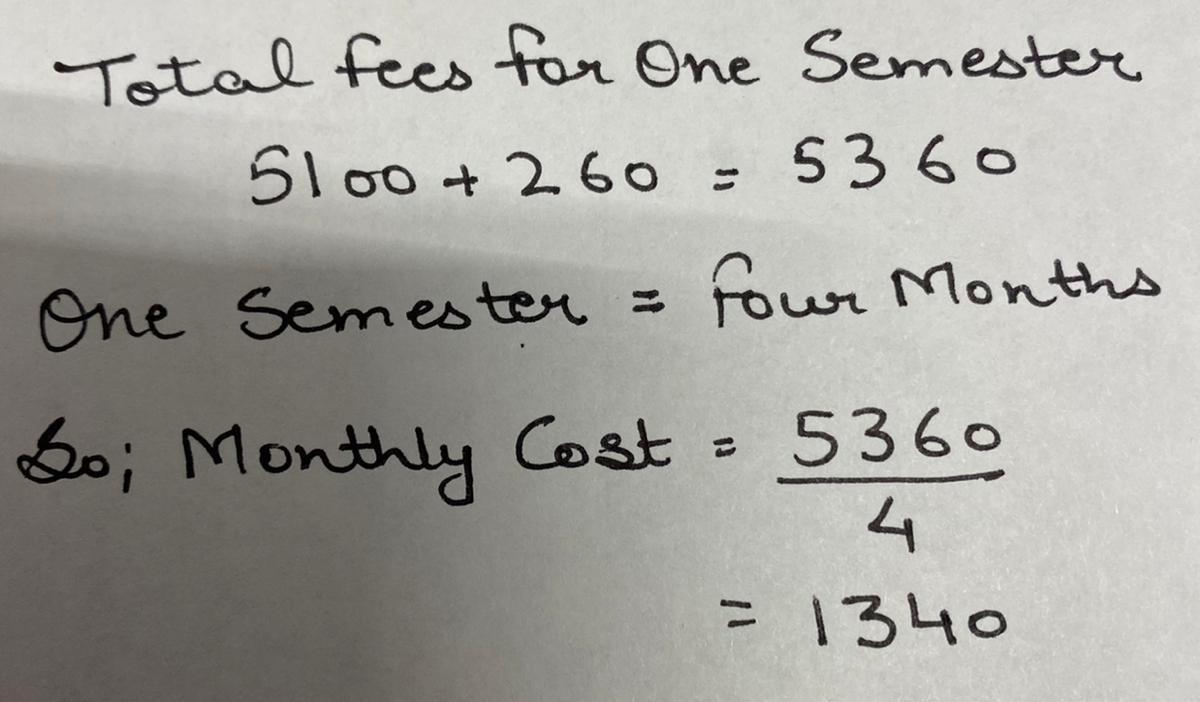 Total fees for One Semester
5100 + 260 = 5360
One Semester = four Months
So; Monthly Cost = 5360
4
= 1340